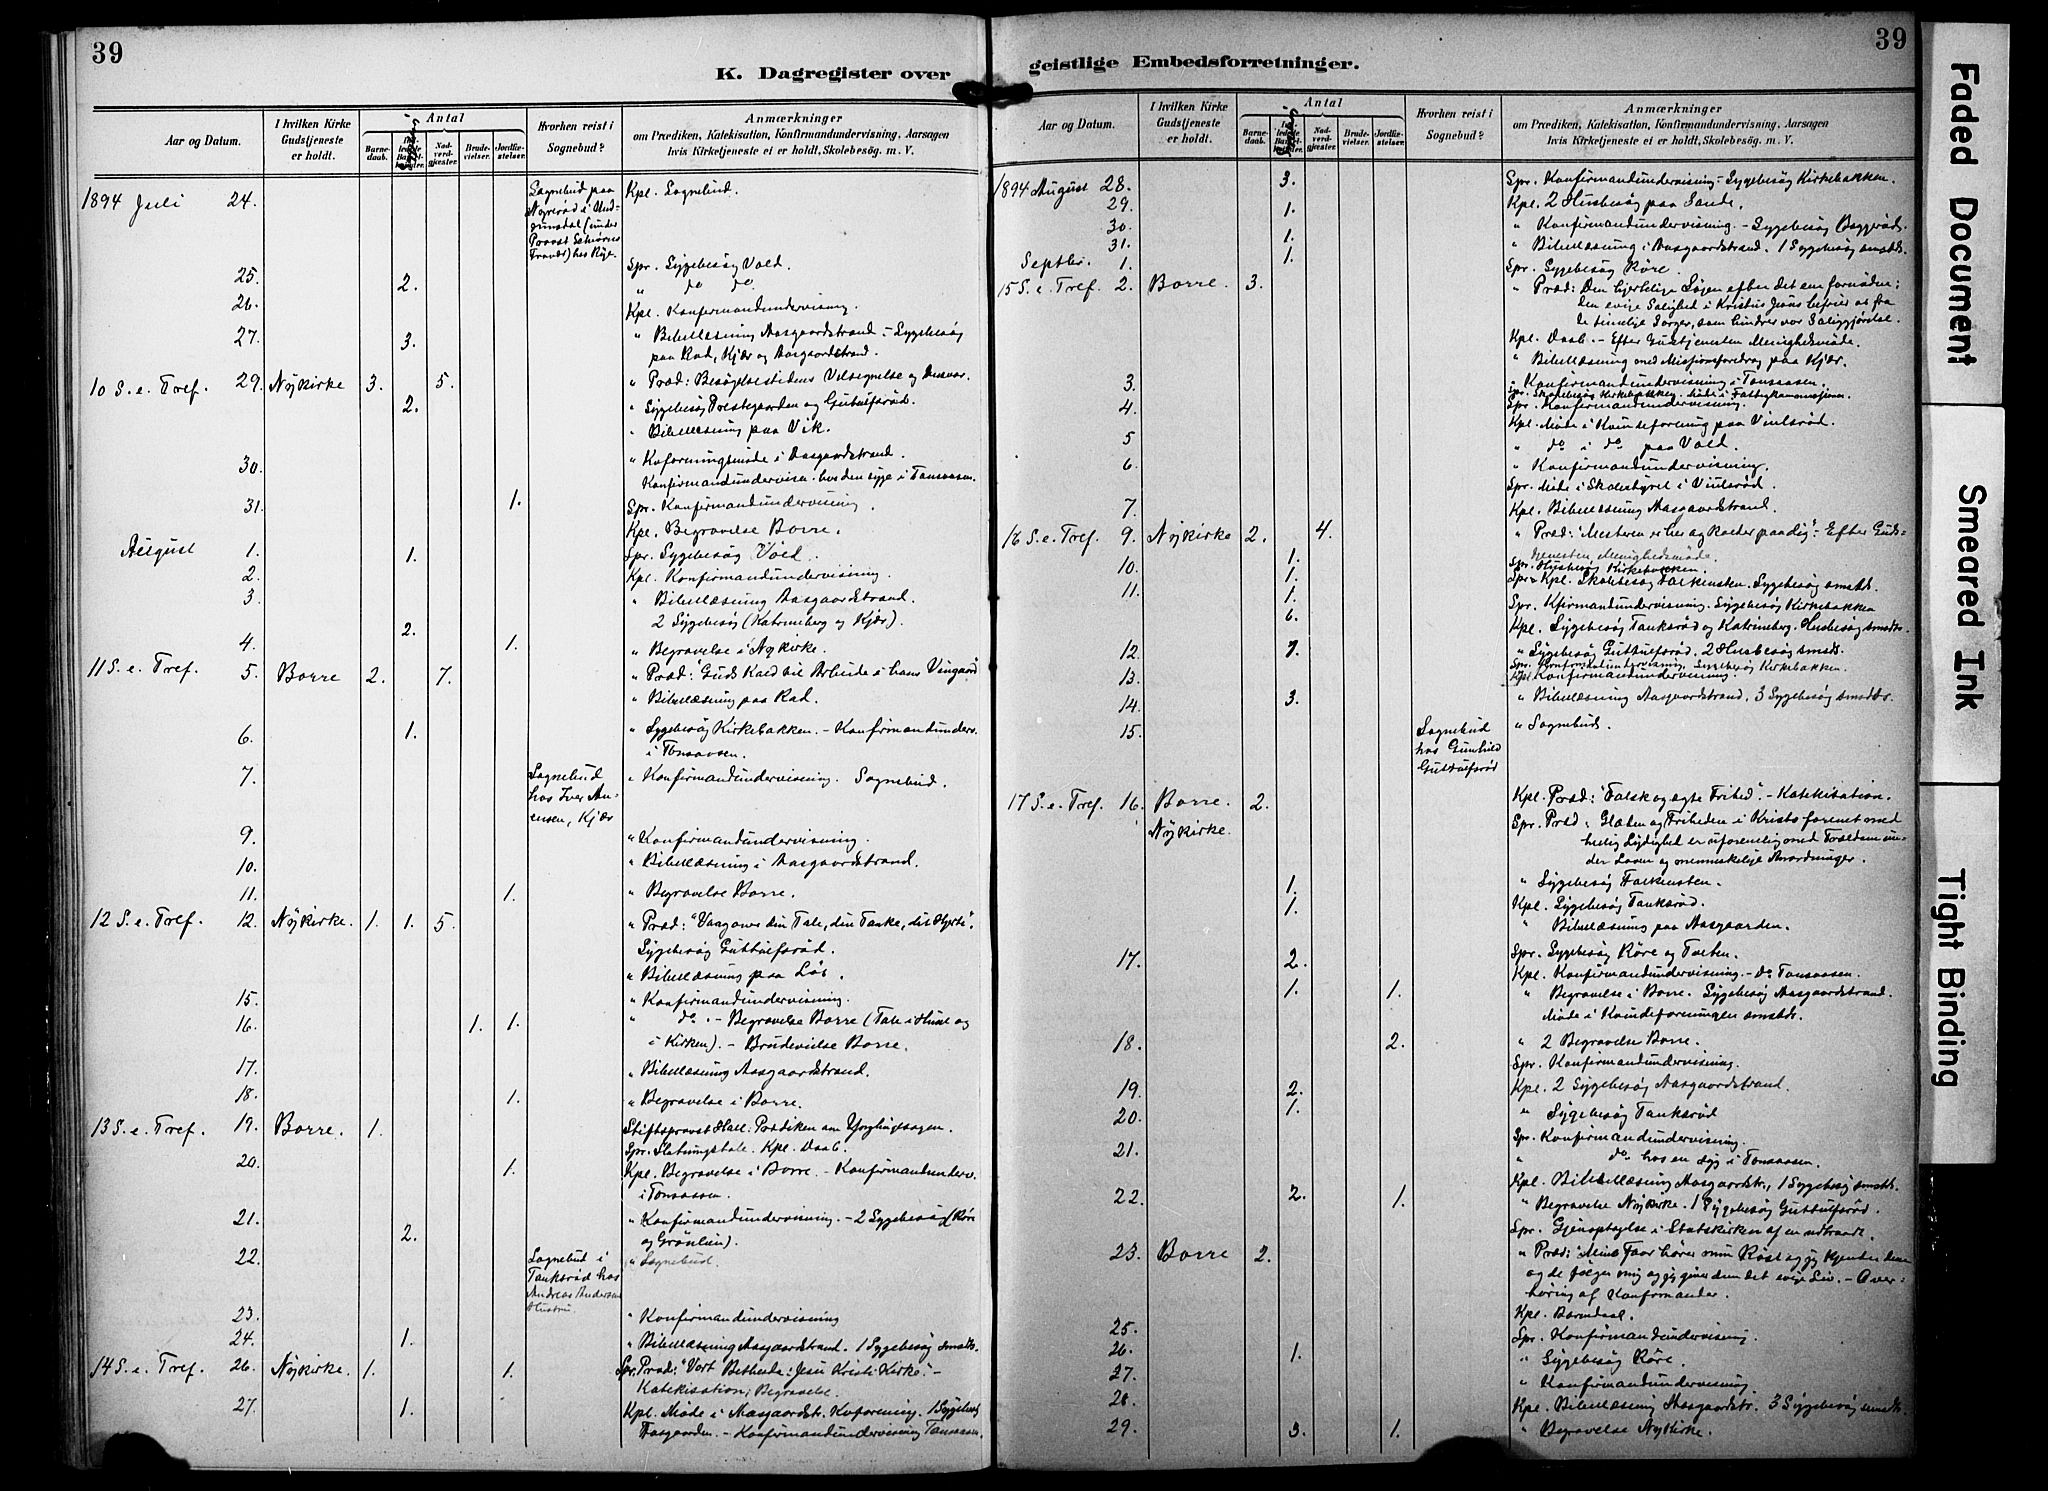 39
K. Dagregister over
Aar og Datum.
I hvilken Kirke
Gudstjeneste
er holdt.
Antal
Barne-
daab.
Nad-
verd-
gjester.
Brude-
vielser.
Jordfæ-
stelser.
Hvorhen reist i
Sognebud?
Anmærkninger
om Prædiken, Katekisation, Konfirmandundervisning, Aarsagen
hvis Kirketjeneste ei er holdt, Skolebesøg. m. V.
1894 Juli 24. Sognebud paa Kpl. Sognebud.
Provst
25. 2. Spr. Sygebesøg Vold.
" do do.
26. Kpl. Konfirmandundervisning.
27. 3. " Bibellæsning Aasgaardstrand. - Sygebesøg
paa Rad, Kjær og Aasgaardstrand.
10 S. e. Tref. 29. Nykirke 3. 5. " Præd: Besøgelsestidens Velsignelse og Ansvar.
2. " Sygebesøg Prestegaarden og Guttulfsrød.
" Bibellæsning paa Vik.
" Kvforeningsmøde i Aasgaardstrand.
30. Konfirmandundervisn. hos den syge i Tonsaasen.
31. 1. Spr. Konfirmandundervisning.
Kpl. Begravelse Borre.
August 1. 1. Spr. Sygebesøg Vold.
2. Kpl. Konfirmandundervisning.
3. " Bibellæsning Aasgaardstrand.
2. 2 Sygebesøg (Katrineberg og Kjær).
4. 1. " Begravelse i Nykirke.
11 S. e. Tref. 5. Borre 2. 7. " Præd: "Guds Kald til Arbeide i hans Vingaard"
" Bibellæsning paa Rad.
6. 1. " Sygebesøg Kirkebakken. - Konfirmandunderv.
i Tonsaasen.
7. Sognebud " Konfirmandundervisning. Sognebud.
hos Iver An-
ensen, Kjær
9. " Konfirmandundervisning.
10. " Bibellæsning i Aasgaardstrand.
11. 1. " Begravelse Borre.
12 S. e. Tref. 12. Nykirke. 1. 1. 5. " Præd: "Vaag over din Tale, din Tanke, dit Hjerte".
Sygebesøg Guttulfsrød.
" Bibellæsning paa
15. " Konfirmandundervisning.
16. 1. 1. " do. - Begravelse Borre (Tale i Huset og
i Kirken). - Brudevielse Borre.
17. " Bibellæsning Aasgaardstrand.
18. 1. " Begravelse i Borre.
13 S. e. Tref. 19. Borre. 1. Stiftsprovst Hall: Prædiken om
Spr. Kpl. Daab.
20. 1. Kpl. Begravelse i Borre. - Konfirmandunderv.
i Tonsaasen.
21. " Konfirmandundervisning. - 2 Sygebesøg (Røre
2. og Grønlien).
22. Sognebud i " Sognebud.
Tanksrød hos
Andreas Andersens
Hustru
23. " Konfirmandundervisning
24. 1. " Bibellæsning Aasgaardstrand. 1 Sygebesøg smstds.
14 S. e. Tref. 26. Nykirke. 1. 1. Spr. Præd: "Vort Bethesda: Jesu Kristi Kirke". -
Katekisation; Begravelse.
27. 1. Kpl. Møde i Aasgaardst. Kvforening. 1 Sygebesøg
Aasgaarden. - Konfirmandundervisning Tonsaasen.
39
geistlige Embedsforretninger.
Aar og Datum.
I hvilken Kirke
Gudstjeneste
er holdt.
Antal
Barne-
daab.
Nad-
verd-
gjester.
Brude-
vielser.
Jordfæ-
stelser.
Hvorhen reist i
Sognebud?
Anmærkninger
om Prædiken, Katekisation, Konfirmandundervisning, Aarsagen
hvis Kirketjeneste ei er holdt, Skolebesøg. m. V.
1894 August 28. 3. Spr. Konfirmandundervisning - Sygebesøg Kirkebakken.
29. 1. Kpl. 2 Husbesøg paa Sande.
30. " Konfirmandundervisning. - Sygebesøg
31. 1. " Bibellæsning i Aasgaardstrand. 1 Sygebesøg smstds.
Septbr. 1. 1. Spr. Sygebesøg Røre.
15 S. e. Tref. 2. Borre. 3. " Præd: Den hjertelige Søgen efter det ene fornødne;
den evige Salighed i Kristus Jesus befrier os fra
de timelige Sorger, som hindrer vor Saliggjørelse.
Kpl. Daab. - Efter Gudstjenesten Menighedsmøde.
" Bibellæsning med Missionsforedrag paa Kjær.
3. " Konfirmandundervisning i Tonsaasen.
Spr. Skolebesøg Kirkebakken. Møde i Fattigkommissionen.
4. Spr. Konfirmandundervisning.
Kpl. Møde i Kvindeforening paa Viulsrød.
5 " do i do paa Vold.
6. " Konfirmandundervisning.
Spr. Møde i Skolestyret i Viulsrød.
7. Kpl. Bibellæsning Aasgaardstrand.
16 S. e. Tref. 9. Nykirke 2. 4. " Præd: "Mesteren er her og kalder paa dig". - Efter Guds-
tjenesten Menighedsmøde.
1. Spr. Husbesøg Kirkebakken.
10. 1. Spr. & Kpl. Skolebesøg Falkensten. Sygebesøg smstds.
11. 1. Spr. Kfirmandundervisning. Sygebesøg Kirkebakken
6. Kpl. Sygebesøg Tanksrød og Katrineberg. Husbesøg smstds.
12. 1. " Sygebesøg Guttulfsrød. 2 Husbesøg smstds.
Spr. Konfirmandundervisning, Sygebesøg Kirkebakken.
13. Kpl. Konfirmandundervisning.
14. 3. " Bibellæsning Aasgaardstrand. 3 Sygebesøg smstds.
15. Sognebud " Sognebud.
hos Gunhild
Guttulfsrød
17 S. e. Tref. 16. Borre. 2. Kpl. Præd: "Falsk og ægte Frihed". - Katekisation.
Nykirke. Spr. Præd: Glæden og Friheden i Kristo forenet med
hellig Lydighed er uforenelig med Trældom un-
der Loven og menneskelige Anordninger.
1. " Sygebesøg Falkensten.
1. Kpl. Sygebesøg Tanksrød.
" Bibellæsning paa Aasgaarden.
17. 2. Spr. Sygebesøg Røre og
Kpl. Konfirmandundervisning. - do Tonsaasen.
1. 1. " Begravelse i Borre. Sygebesøg Aasgaardstrand.
Møde i Kvindeforeningen smstds.
18. 2. " 2 Begravelse Borre.
Spr. Konfirmandundervisning.
19. 2. Kpl. 2 Sygebesøg Aasgaardstrand.
20. 1. " Sygebesøg Tanksrød
Spr. Konfirmandundervisning.
21. " do hos en syg i Tonsaasen.
Kpl. Bibellæsning Aasgaardstr., 1 Sygebesøg smstds.
22. 2. 1. " Begravelse Nykirke. 1 Sygebesøg Guttulfsrød.
Spr. Gjenoptagelse i Statskirken af en udtraadt.
23. Borre 2. " Præd: "Mine Faar hører min Røst og jeg kjender dem
og de følger mig og jeg giver dem det evige Liv. - Over-
høring af Konfirmander.
Kpl. Barnedaab.
25. Spr. Konfirmandundervisning.
26. 1. " Sygebesøg Røre.
27. " Konfirmandundervisning
28. Kpl. Bibellæsning Aasgaardstr. 3 Sygebesøg smstds.
29. 3. 1. " Begravelse Nykirke.
Faded Document
Smeared Ink
Tight Binding